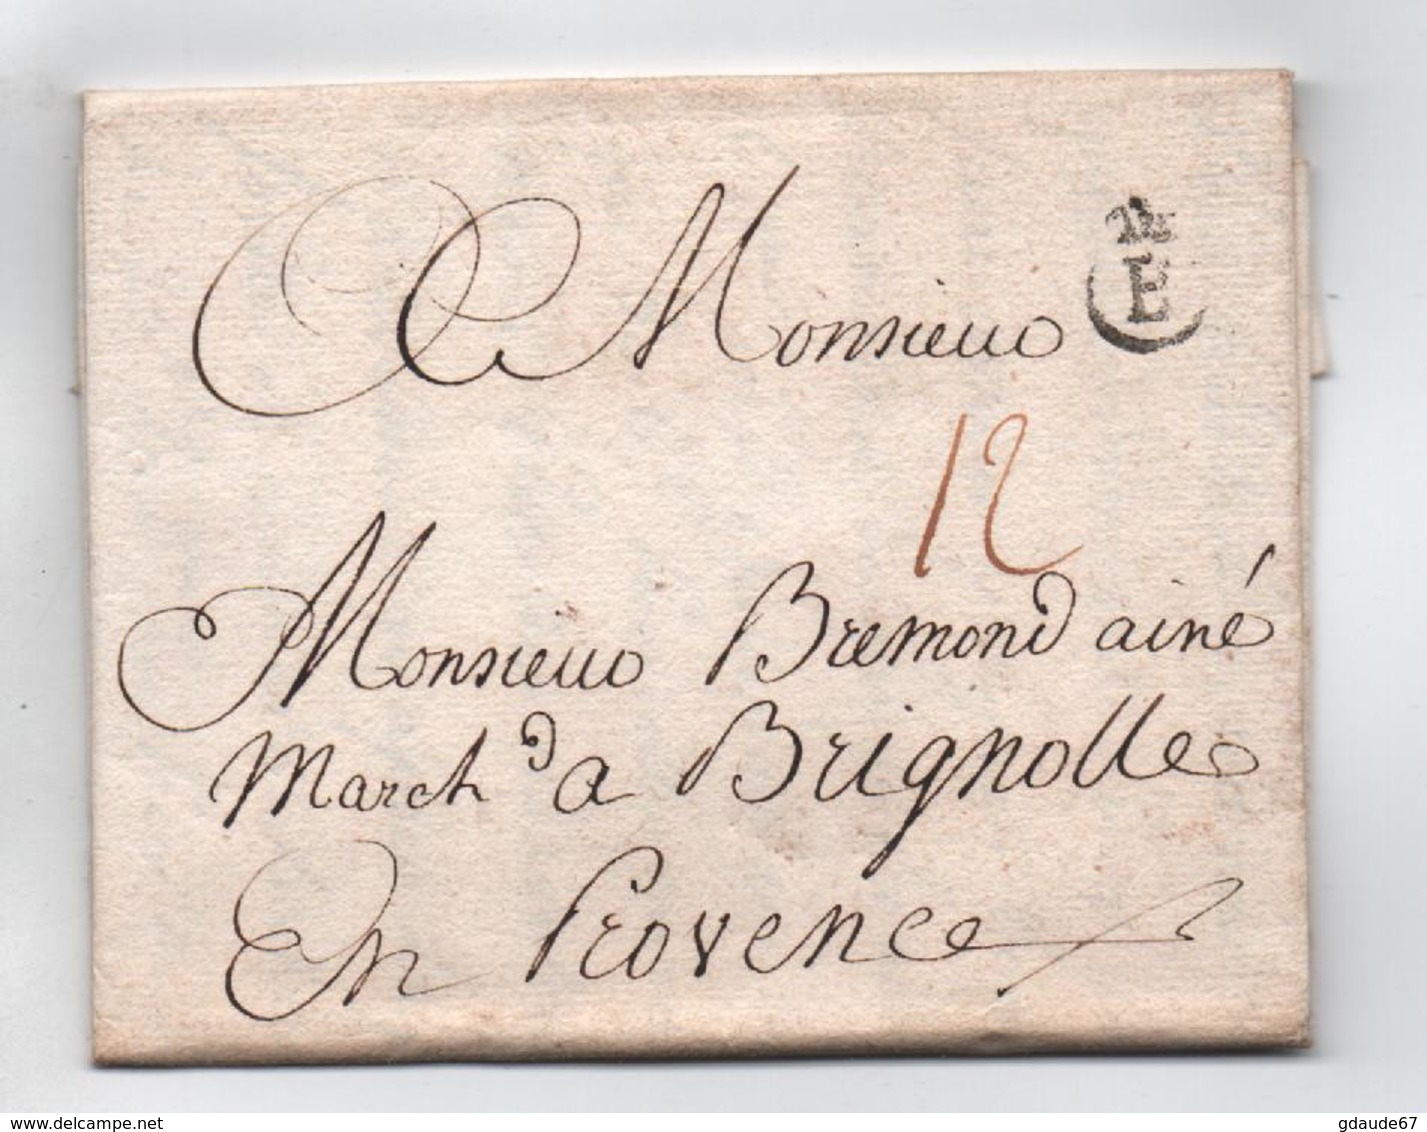 A Monsieur
B
12
Monsieur Bremond ainé
March.d a Brignolle
En Provence
delcampe.net
gdaude67